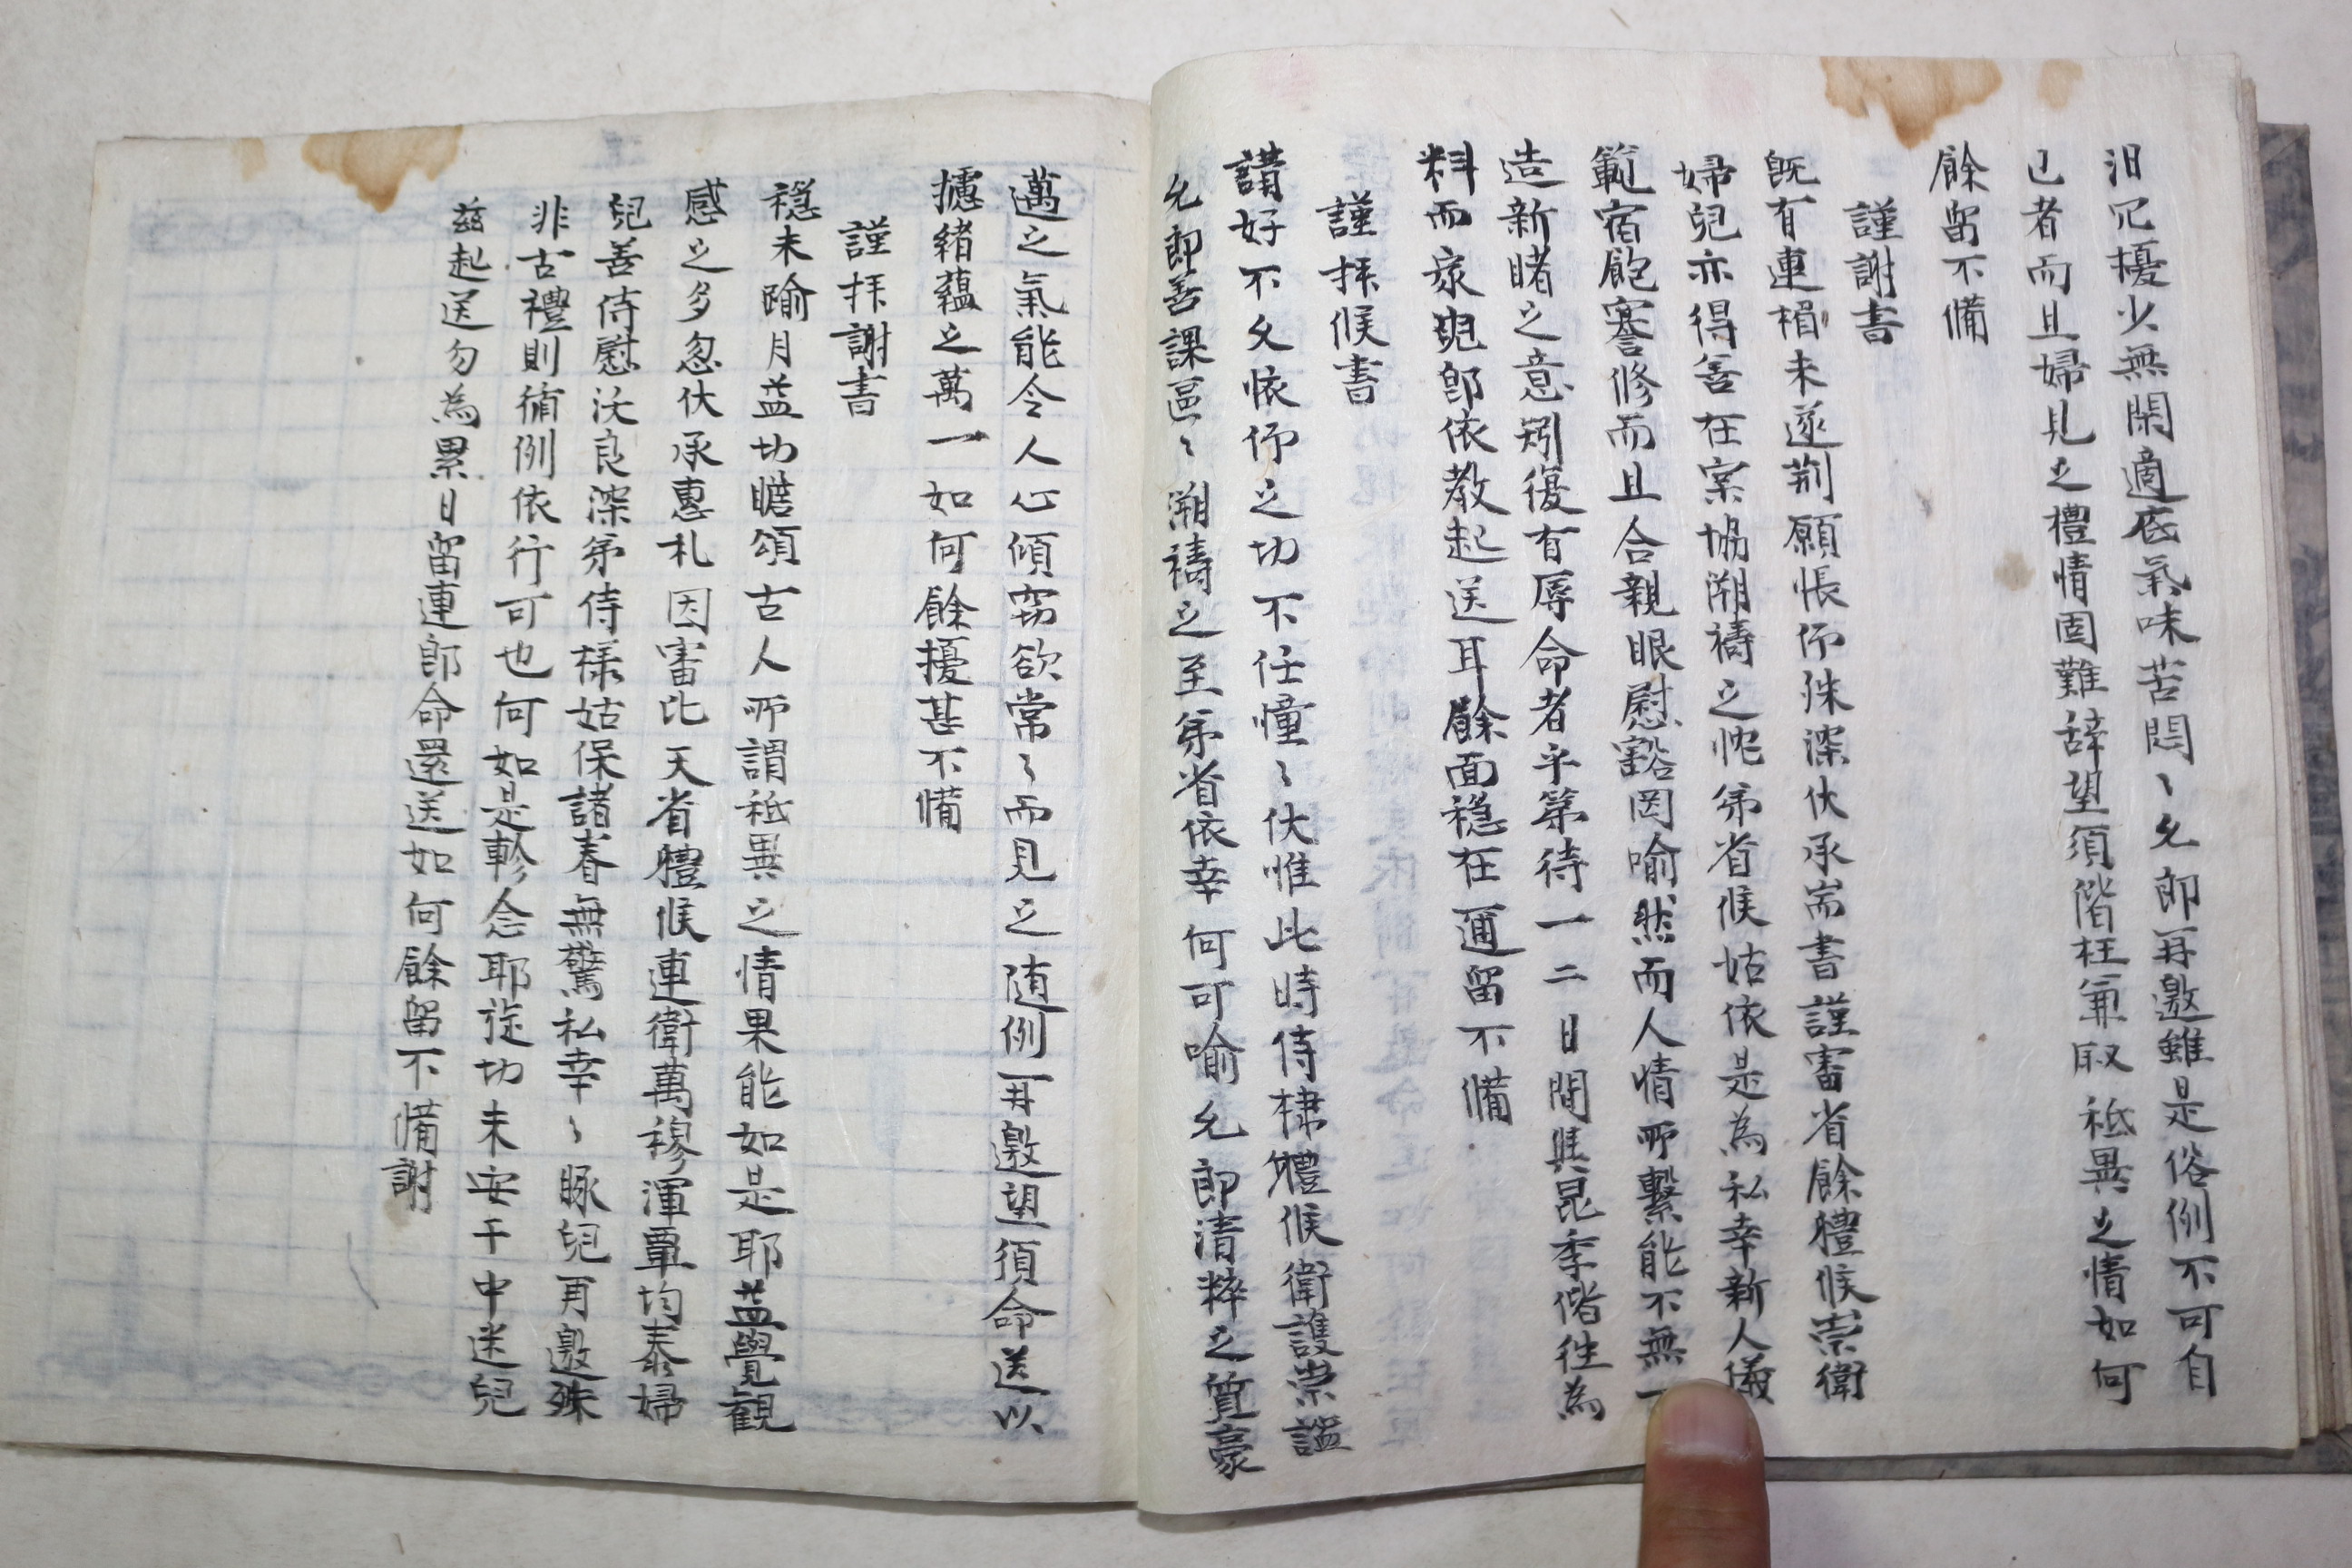 汨冗擾少無閑適底氣味苦悶〻允郎再邀雖是俗例不可自
已者而且婦見之禮情固難辞望須偕枉兼敢祗異之情如何
餘留不備
謹謝書
旣有連楣未遂荊願悵仰殊深伏承耑書謹審省餘體候崇衛
婦兒亦得善在案協溯禱之忱弟省候姑依是為私幸新人儀
範宿飽謇修而且合親眼慰豁罔喻然而人情所繫能不無一
造新睹之意矧復有辱命者乎第待一二日間其昆季偕徃為
料而家
郎依教起送耳餘面穩在邇留不備
謹拜候書
講好不久依仰之切不任憧〻伏惟此時侍棣體候衛護崇謐
允郎善課區〻溯禱之至弟省依幸何可喻允郎清粹之質豪
邁之氣能令人心傾窃欲常〻而見之随例再邀望須命送以
攄緒蘊之萬一如何餘擾甚不備
謹拝謝書
穩未踰月益切瞻頌古人所謂祗異之情果能如是耶益覺觀
感之多忽伏承惠札因審比天省體候連衛萬穆渾覃均泰婦
兒善侍慰沃良深弟侍樣姑保諸眷無驚私幸〻豚兒再邀殊
非古禮則循例依行可也何如是軫念耶旋切未安千中送兒
茲起送勿為累日留連郎命還送如何餘留不備謝